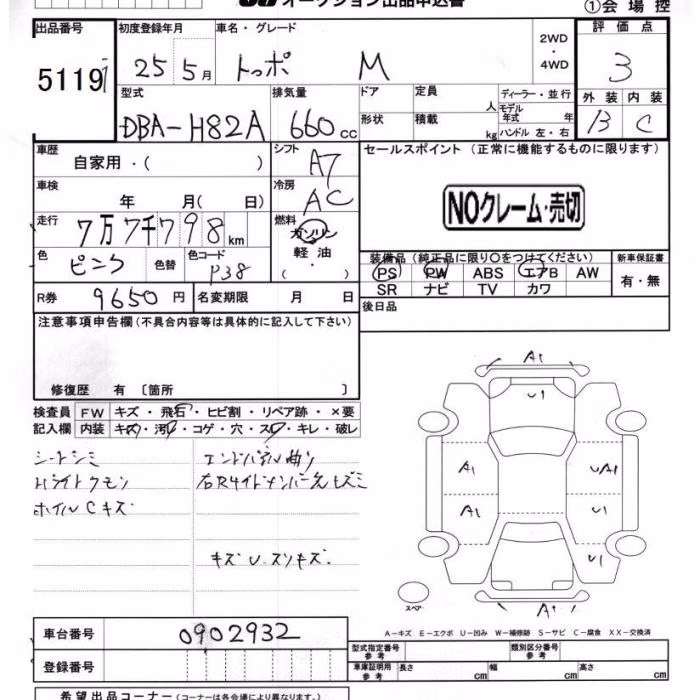 オークション出品申込書 ①会場控
出品番号 初度登録年月 車名・グレード 2WD・4WD 評価点
5119 25 5月 トッポ M 3
型式 排気量 ドア 定員 人 ディーラー・並行 外装 内装
DBA-H82A 660cc 形状 積載 kg モデル年式 年 ハンドル 左・右 B C
車歴 自家用・( ) シフト A7 セールスポイント (正常に機能するものに限ります)
車検 年 月( 日) 冷房 AC NOクレーム・売切
走行 7万7千798km 燃料 ガソリン 軽油 ( ・ )
色 ピンク 色替 色コード P38 装備品 (純正品に限り〇をつけてください) 新車保証書
PS PW ABS エアB AW 有・無
SR ナビ TV カワ
R券 9650円 名変期限 月 日 後日品
注意事項申告欄(不具合内容等は具体的に記入して下さい)
修復歴 有 〔箇所 〕
検査員 FW キズ・飛石・ヒビ割・リペア跡・×要
記入欄 内装 キズ・汚レ・コゲ・穴・スレ・キレ・破レ
シートシミ エンドパネル曲り
Hライトクモリ
ホイルCキズ
キズU.スリキズ.
A1
U1
A1 UA1
A1 U1
U1
スペア A1
A-キズ E-エクボ U-凹み W-補修跡 S-サビ C-腐食 XX-交換済
車台番号 0902932 型式指定番号 参考 類別区分番号 参考
登録番号 車庫証明用 参考 長さ cm 幅 cm 高さ cm
希望出品コーナー (コーナーは各会場により異なります。)